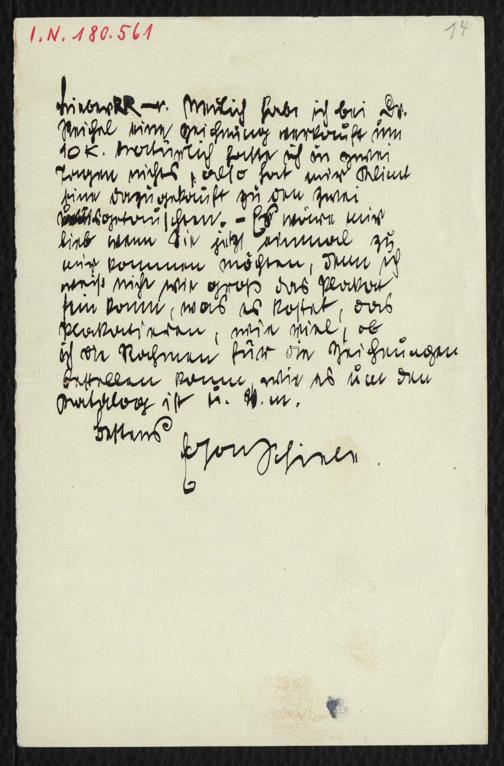 I.N. 180.561
14
Lieber RR–r. Neulich habe ich bei Dr.
Reichel eine Zeichnung verkauft um
10 K. Natürlich hatte ich in zwei
Tagen nichts, also hat mir Klimt
eine dazugekauft zu den zwei
ausgetauschten. – Es wäre mir
lieb wenn Sie jetzt einmal zu
mir kommen möchten, denn ich
weiß nicht wie groß das Plakat
sein kann, was es kostet, das
Plakatieren, wie viel, ob
ich die Rahmen für die Zeichnungen
bestellen kann, wie es um den
Katalog ist u. s. w.
Bestens
Egon Schiele.